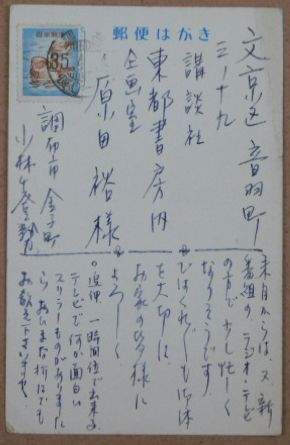 郵便はがき
日本郵便
35
文京区 音羽町
三ノ十九
講談社
東都書房内
企画室
原田 裕 様
調布市 金子町
小林
来月からは、又、新
番組の ラジオ・テレビ
の方で 少し忙しく
なりそうです。
くれぐれも御体
を大切に。
お家の皆様に
よろしく
○追伸 一時間位で出来る
テレビで何か面白い
スリラーものがありました
ら、おひまな折にでも
お教え下さいませ